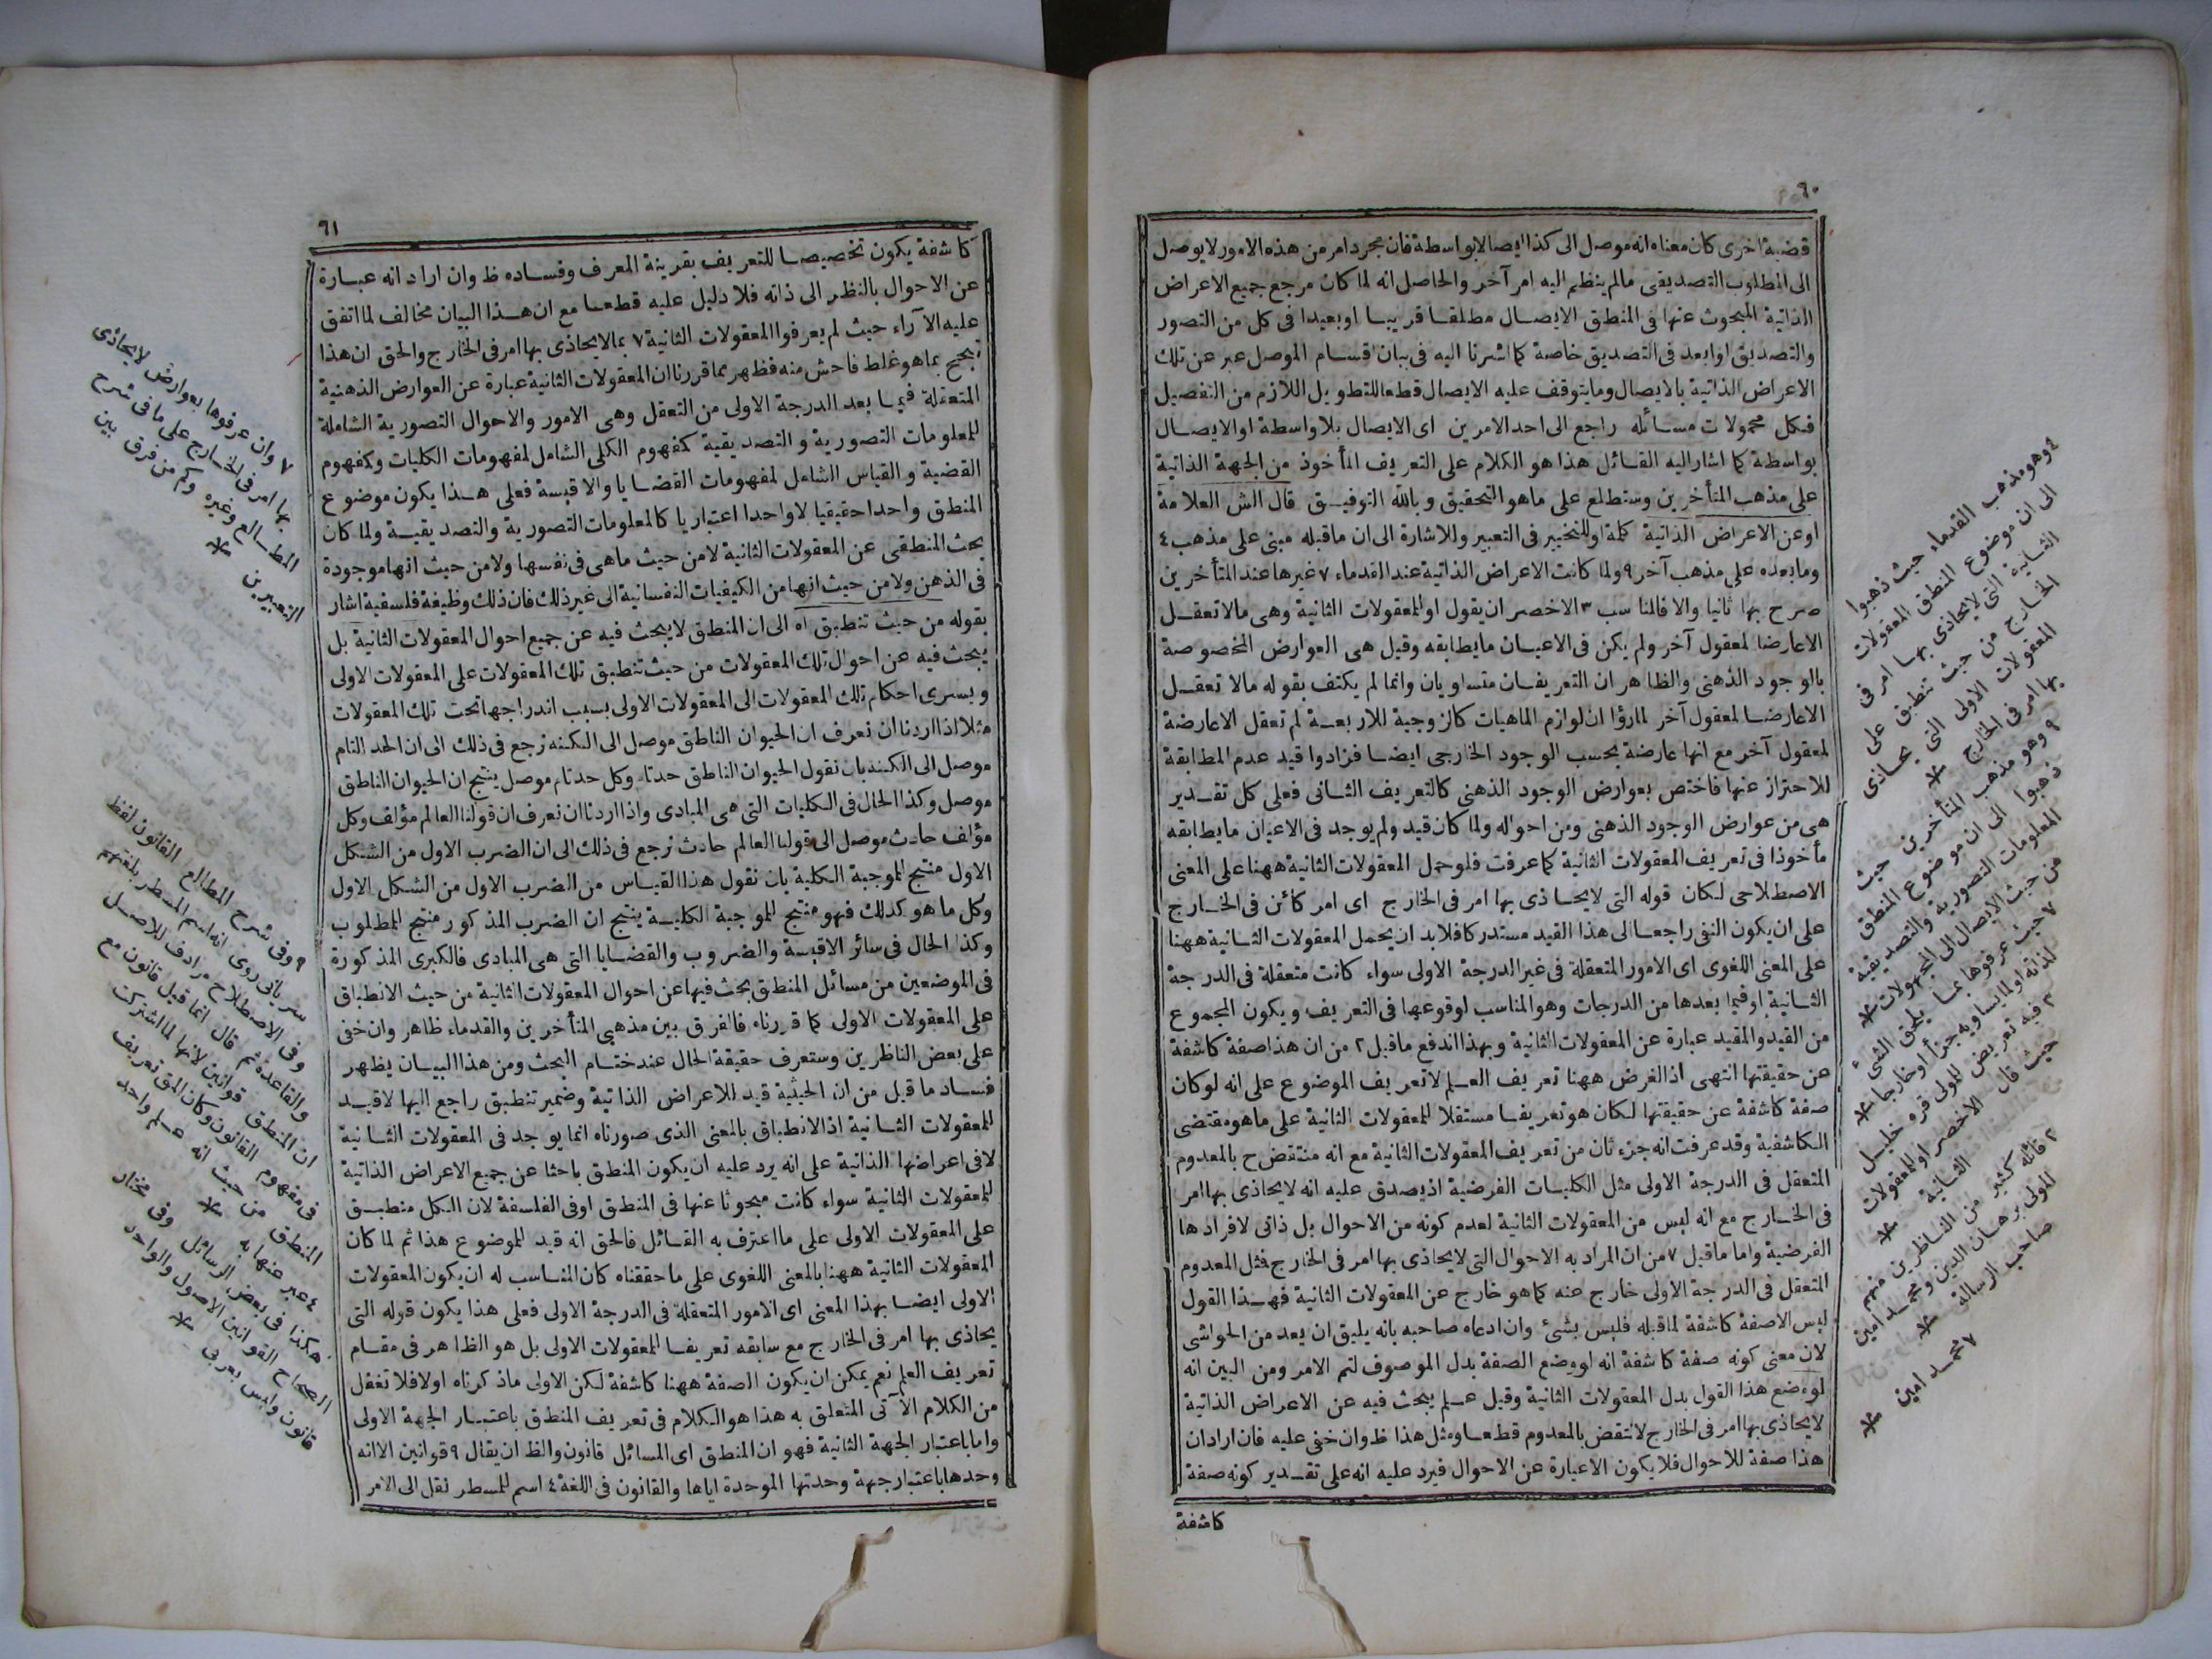 ٦٠
قضية اخرى كان معناه انه موصل الى كذا ايصالا بواسطة فان مجرد امر من هذه الامور لا يوصل
الى المطلوب التصديقى مالم ينظم اليه امر آخر والحاصل انه لما كان مرجع جميع الاعراض
الذاتية المبحوث عنها فى المنطق الايصال مطلقا قريبا او بعيدا فى كل من التصور
والتصديق او ابعد فى التصديق خاصة كما اشرنا اليه فى بيان اقسام الموصل عبر عن تلك
الاعراض الذاتية بالايصال وما يتوقف عليه الايصال قطعا للتطويل اللازم من التفصيل
فكل محمولات مسائله راجع الى احد الامرين اى الايصال بلا واسطة او الايصال
بواسطة كما اشار اليه القائل هذا هو الكلام على التعريف المأخوذ من الجهة الذاتية
على مذهب المتأخرين وستطلع على ماهو التحقيق وبالله التوفيق قال الش العلامة
او عن الاعراض الذاتية كلمة او للتخيير فى التعبير وللاشارة الى ان ماقبله مبنى على مذهب ٤
ومابعده على مذهب آخر ٩ ولما كانت الاعراض الذاتية عند القدماء ٧ غيرها عند المتأخرين
صرح بها ثانيا والا فالمناسب ٣ الاخصر ان يقول او المعقولات الثانية وهى مالا تعقل
الاعارضا لمعقول آخر ولم يكن فى الاعيان مايطابقه وقيل هى العوارض المخصوصة
بالوجود الذهنى والظاهر ان التعريفان متساويان وانما لم يكتف بقوله مالا تعقل
الاعارضا لمعقول آخر لما رؤا ان لوازم الماهيات كالزوجية للاربعة لم تعقل الاعارضة
لمعقول آخر مع انها عارضة بحسب الوجود الخارجى ايضا فزادوا قيد عدم المطابقة
للاحتراز عنها فاختص بعوارض الوجود الذهنى كالتعريف الثانى فعلى كل تقدير
هى من عوارض الوجود الذهنى ومن احواله ولما كان قيد ولم يوجد فى الاعيان مايطابقه
مأخوذا فى تعريف المعقولات الثانية كما عرفت فلو حمل المعقولات الثانية ههنا على المعنى
الاصطلاحى لكان قوله التى لايحاذى بها امر فى الخارج اى امر كائن فى الخارج
على ان يكون النفى راجعا الى هذا القيد مستدركا فلابد ان يحمل المعقولات الثانية ههنا
على المعنى اللغوى اى الامور المتعقلة فى غير الدرجة الاولى سواء كانت متعقلة فى الدرجة
الثانية او فيما بعدها من الدرجات وهو المناسب لوقوعها فى التعريف ويكون المجموع
من القيد والمقيد عبارة عن المعقولات الثانية وبهذا اندفع ماقيل ٢ من ان هذا صفة كاشفة
عن حقيقتها انتهى اذ الغرض ههنا تعريف العلم لا تعريف الموضوع على انه لو كان
صفة كاشفة عن حقيقتها لكان هو تعريفا مستقلا للمعقولات الثانية على ماهو مقتضى
الكاشفية وقد عرفت انه جزء ثان من تعريف المعقولات الثانية مع انه منتقض ح بالمعدوم
المتعقل فى الدرجة الاولى مثل الكليات الفرضية اذ يصدق عليه انه لايحاذى بها امر
فى الخارج مع انه ليس من المعقولات الثانية لعدم كونه من الاحوال بل ذاتى لافرادها
الفرضية واما ماقيل ٧ من ان المراد به الاحوال التى لايحاذى بها امر فى الخارج فمثل المعدوم
المتعقل فى الدرجة الاولى خارج عنه كما هو خارج عن المعقولات الثانية فهذا القول
ليس الاصفة كاشفة لماقبله فليس بشئ وان ادعاه صاحبه بانه يليق ان يعد من الحواشى
لان معنى كونه صفة كاشفة انه لو وضع الصفة بدل الموصوف لتم الامر ومن البين انه
لو وضع هذا القول بدل المعقولات الثانية وقيل علم يبحث فيه عن الاعراض الذاتية
لايحاذى بها امر فى الخارج لانتقض بالمعدوم قطعا ومثل هذا ظ وان خفى عليه فان اراد ان
هذا صفة للاحوال فلا يكون الاعبارة عن الاحوال فيرد عليه انه على تقدير كونه صفة
كاشفة
٤ وهو مذهب القدماء حيث ذهبوا
الى ان موضوع المنطق المعقولات
الثانية التى لايحاذى بها امر فى
الخارج من حيث تنطبق على
المعقولات الاولى التى يحاذى
بها امر فى الخارج *
٩ وهو مذهب المتأخرين حيث
ذهبوا الى ان موضوع المنطق
المعلومات التصورية والتصديقية
من حيث الايصال الى المجهولات *
٧ حيث عرفوها بما يلحق الشئ
لذاته او لما يساويه جزأ او خارجا *
٣ فيه تعريض للمولى قره خليل
حيث قال الاخصر او المعقولات
الثانية *
٢ قائله كثير من الناظرين منهم
المولى برهان الدين ومحمد امين
صاحب الرسالة *
٧ محمد امين *
٦١
كاشفة يكون تخصيصا للتعريف بقرينة المعرف وفساده ظ وان اراد انه عبارة
عن الاحوال بالنظر الى ذاته فلا دليل عليه قطعا مع ان هذا البيان مخالف لما اتفق
عليه الآراء حيث لم يعرفوا المعقولات الثانية ٧ بما لايحاذى بها امر فى الخارج والحق ان هذا
تبجح بما هو غلط فاحش منه فظهر مما قررنا ان المعقولات الثانية عبارة عن العوارض الذهنية
المتعقلة فيما بعد الدرجة الاولى من التعقل وهى الامور والاحوال التصورية الشاملة
للمعلومات التصورية والتصديقية كمفهوم الكلى الشامل لمفهومات الكليات وكمفهوم
القضية والقياس الشامل لمفهومات القضايا والاقيسة فعلى هذا يكون موضوع
المنطق واحدا حقيقيا لا واحدا اعتباريا كالمعلومات التصورية والتصديقية ولما كان
بحث المنطقى عن المعقولات الثانية لا من حيث ماهى فى نفسها ولا من حيث انها موجودة
فى الذهن ولا من حيث انها من الكيفيات النفسانية الى غير ذلك فان ذلك وظيفة فلسفية اشار
بقوله من حيث تنطبق اه الى ان المنطق لايبحث فيه عن جميع احوال المعقولات الثانية بل
يبحث فيه عن احوال تلك المعقولات من حيث تنطبق تلك المعقولات على المعقولات الاولى
ويسرى احكام تلك المعقولات الى المعقولات الاولى بسبب اندراجها تحت تلك المعقولات
مثلا اذا اردنا ان نعرف ان الحيوان الناطق موصل الى الكنه نرجع فى ذلك الى ان الحد التام
موصل الى الكنه بان نقول الحيوان الناطق حد تام وكل حد تام موصل ينتج ان الحيوان الناطق
موصل وكذا الحال فى الكليات التى هى المبادى واذا اردنا ان نعرف ان قولنا العالم مؤلف وكل
مؤلف حادث موصل الى قولنا العالم حادث نرجع فى ذلك الى ان الضرب الاول من الشكل
الاول منتج للموجبة الكلية بان نقول هذا القياس من الضرب الاول من الشكل الاول
وكل ما هو كذلك فهو منتج للموجبة الكلية ينتج ان الضرب المذكور منتج للمطلوب
وكذا الحال فى سائر الاقيسة والضروب والقضايا التى هى المبادى فالكبرى المذكورة
فى الموضعين من مسائل المنطق يبحث فيها عن احوال المعقولات الثانية من حيث الانطباق
على المعقولات الاولى كما قررناه فالفرق بين مذهبى المتأخرين والقدماء ظاهر وان خفى
على بعض الناظرين وستعرف حقيقة الحال عند ختام البحث ومن هذا البيان يظهر
فساد ما قيل من ان الحيثية قيد للاعراض الذاتية وضمير تنطبق راجع اليها لاقيد
للمعقولات الثانية اذ الانطباق بالمعنى الذى صورناه انما يوجد فى المعقولات الثانية
لا فى اعراضها الذاتية على انه يرد عليه ان يكون المنطق باحثا عن جميع الاعراض الذاتية
للمعقولات الثانية سواء كانت مبحوثا عنها فى المنطق او فى الفلسفة لان الكل منطبق
على المعقولات الاولى على ما اعترف به القائل فالحق انه قيد للموضوع هذا ثم لما كان
المعقولات الثانية ههنا بالمعنى اللغوى على ما حققناه كان المناسب له ان يكون المعقولات
الاولى ايضا بهذا المعنى اى الامور المتعقلة فى الدرجة الاولى فعلى هذا يكون قوله التى
يحاذى بها امر فى الخارج مع سابقه تعريفا للمعقولات الاولى بل هو الظاهر فى مقام
تعريف العلم نعم يمكن ان يكون الصفة ههنا كاشفة لكن الاولى ماذكرناه اولا فلا تغفل
من الكلام الآتى المتعلق به هذا هو الكلام فى تعريف المنطق باعتبار الجهة الاولى
واما باعتبار الجهة الثانية فهو ان المنطق اى المسائل قانون والظ ان يقال ٩ قوانين الا انه
وحدها باعتبار جهة وحدتها الموحدة اياها والقانون فى اللغة ٤ اسم للمسطر نقل الى الامر
٧ وان عرفوها بعوارض لايحاذى
بها امر فى الخارج على ما فى شرح
المطالع وغيره وكم من فرق بين
التعبيرين *
٩ وفى شرح المطالع القانون لفظ
سريانى روى انه اسم المسطر بلغتهم
وفى الاصطلاح مرادف للاصل
والقاعدة ثم قال انما قيل قانون مع
ان المنطق قوانين لانها لما اشتركت
فى مفهوم القانون وكان المق تعريف
المنطق من حيث انه علم واحد
عبر عنها به *
٤ هكذا فى بعض الرسائل وفى مختار
الصحاح القوانين الاصول والواحد
قانون وليس بعربى *